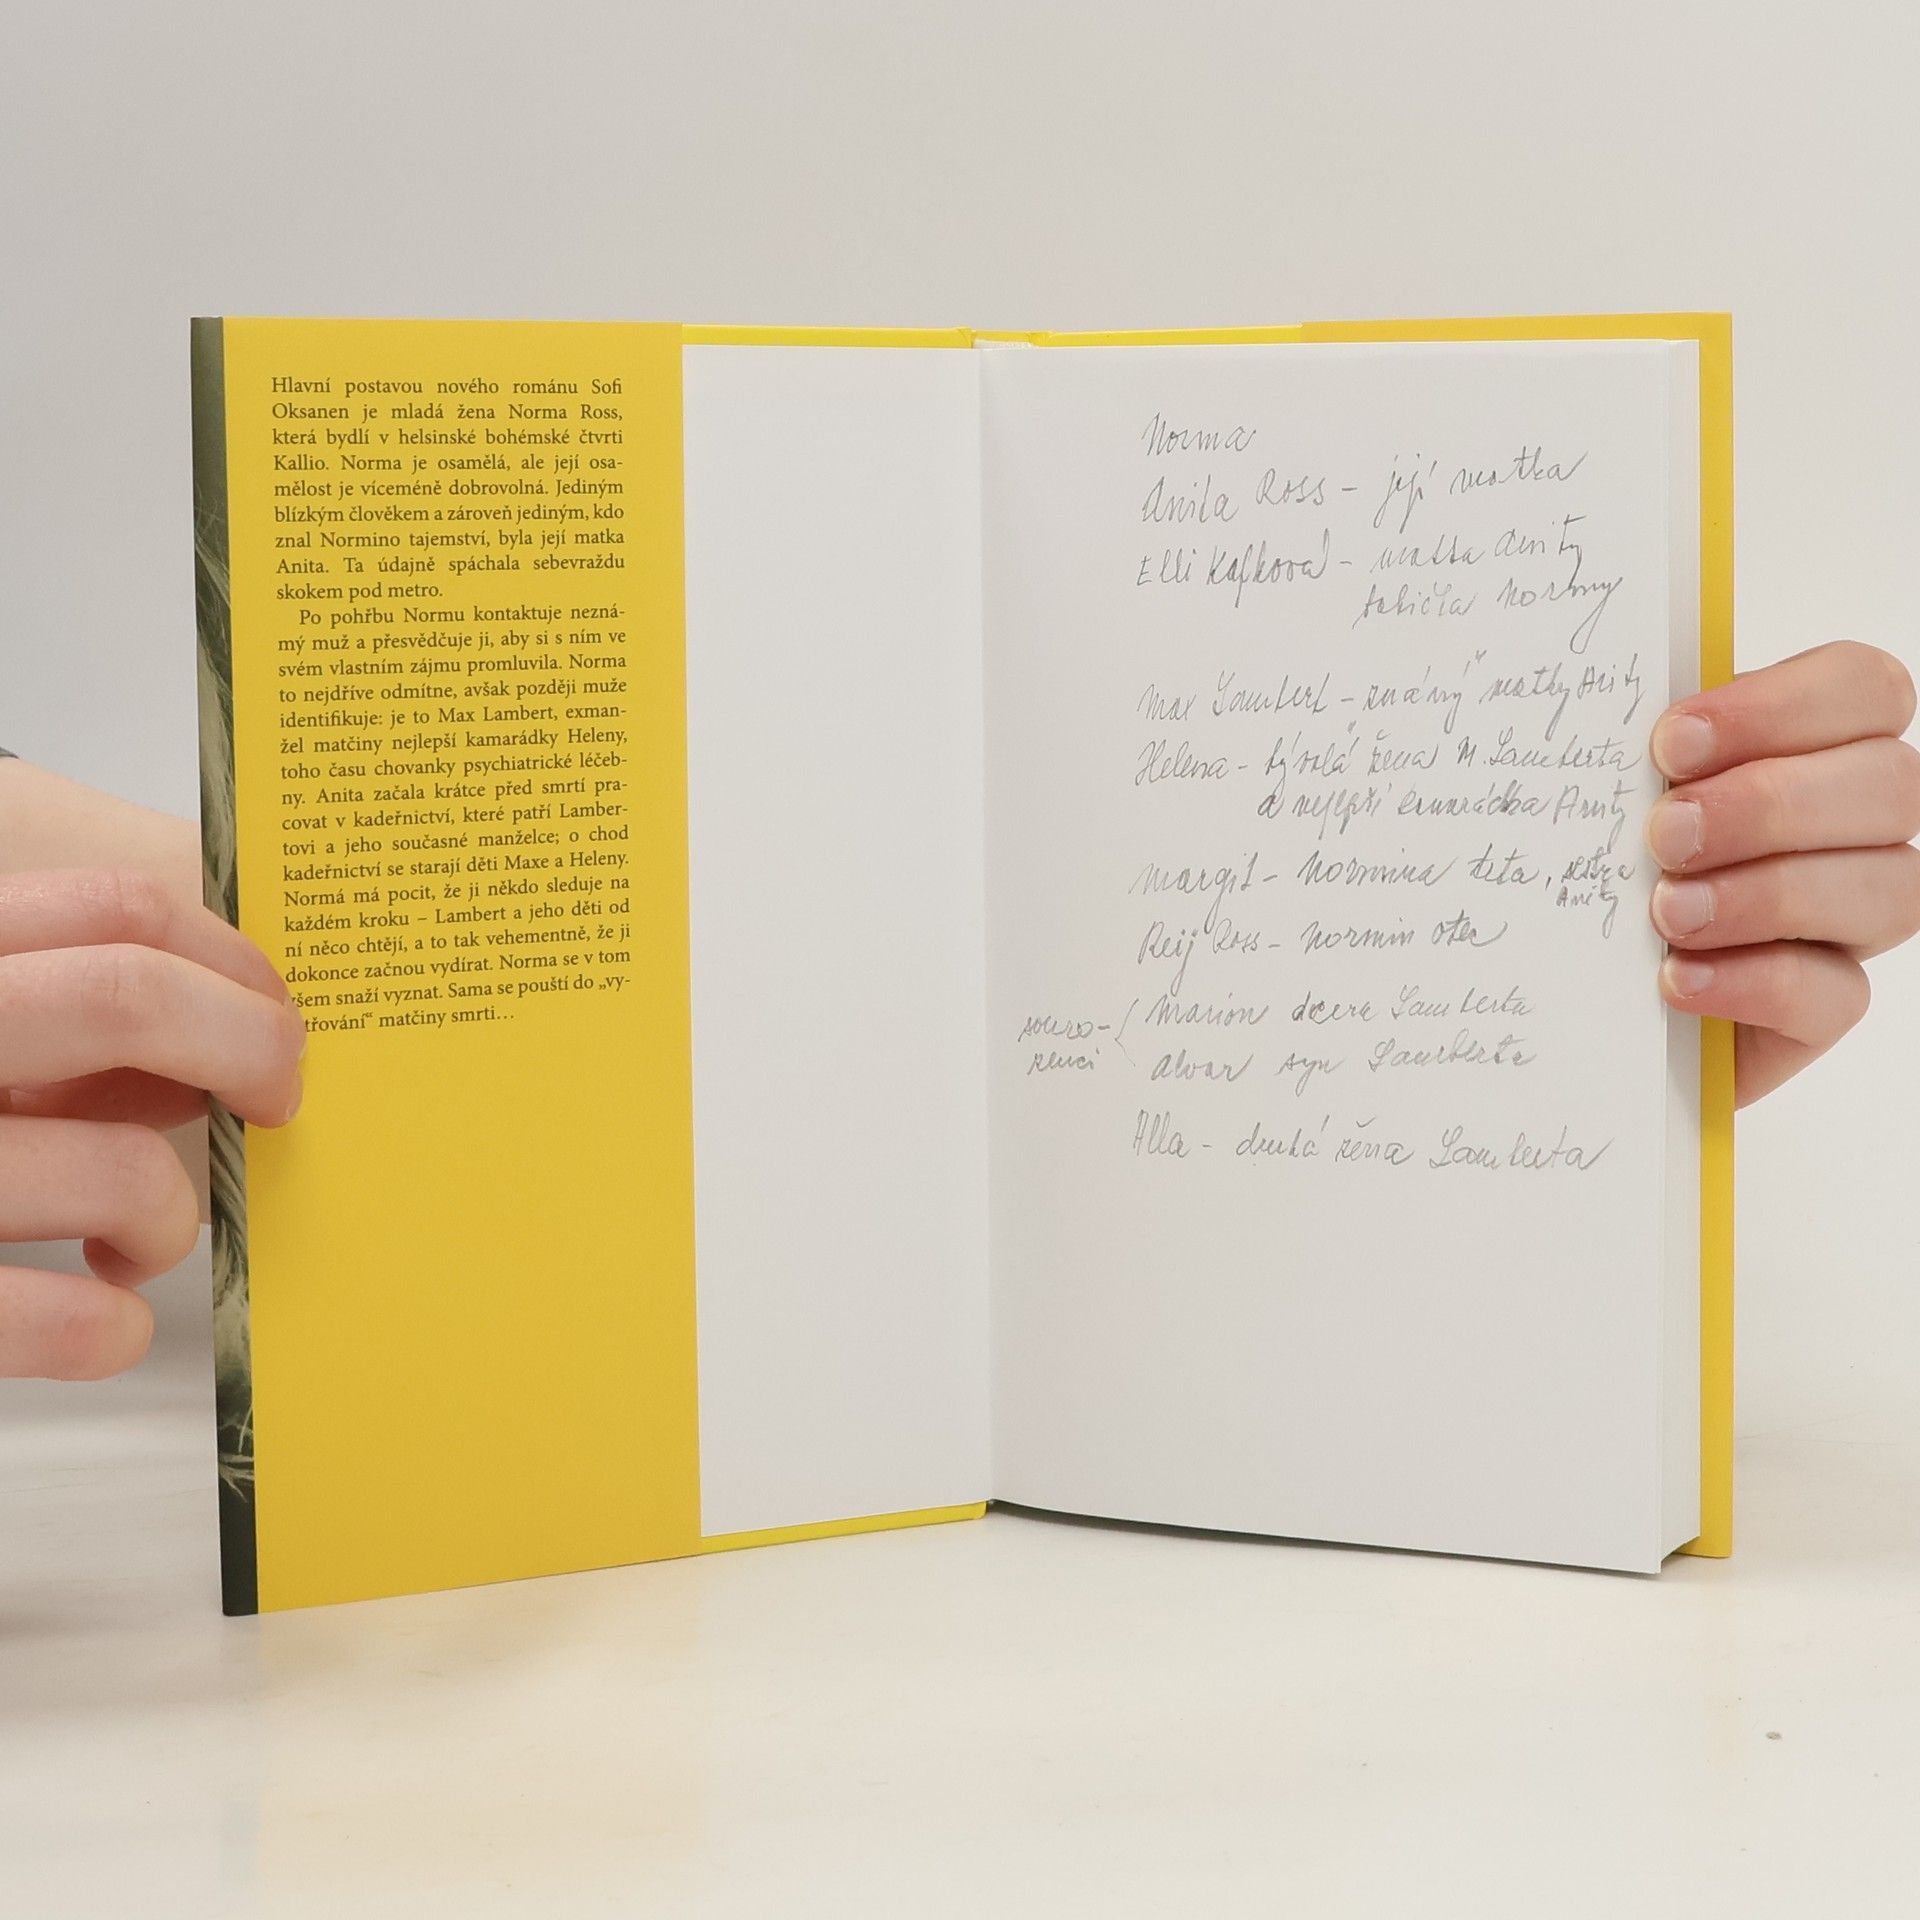 Hlavní postavou nového románu Sofi
Oksanen je mladá žena Norma Ross,
která bydlí v helsinské bohémské čtvrti
Kallio. Norma je osamělá, ale její osa-
mělost je víceméně dobrovolná. Jediným
blízkým člověkem a zároveň jediným, kdo
znal Normino tajemství, byla její matka
Anita. Ta údajně spáchala sebevraždu
skokem pod metro.
Po pohřbu Normu kontaktuje nezná-
mý muž a přesvědčuje ji, aby si s ním ve
svém vlastním zájmu promluvila. Norma
to nejdříve odmítne, avšak později muže
identifikuje: je to Max Lambert, exman-
žel matčiny nejlepší kamarádky Heleny,
toho času chovanky psychiatrické léčeb-
ny. Anita začala krátce před smrtí pra-
covat v kadeřnictví, které patří Lamber-
tovi a jeho současné manželce; o chod
kadeřnictví se starají děti Maxe a Heleny.
Normá má pocit, že ji někdo sleduje na
každém kroku – Lambert a jeho děti od
ní něco chtějí, a to tak vehementně, že ji
dokonce začnou vydírat. Norma se v tom
všem snaží vyznat. Sama se pouští do „vy-
třování“ matčiny smrti…
Norma
Anita Ross – její matka
Elli Kafková – matka Anity
babička Normy
Max Lambert – "známý" matky Anity
Helena – bývalá žena M. Lamberta
a nejlepší kamarádka Anity
Margit – Normina teta, sestra
Anity
Reij Ross – Normin otec
souro-
zenci
Marion dcera Lamberta
Alvar syn Lamberta
Alla – druhá žena Lamberta